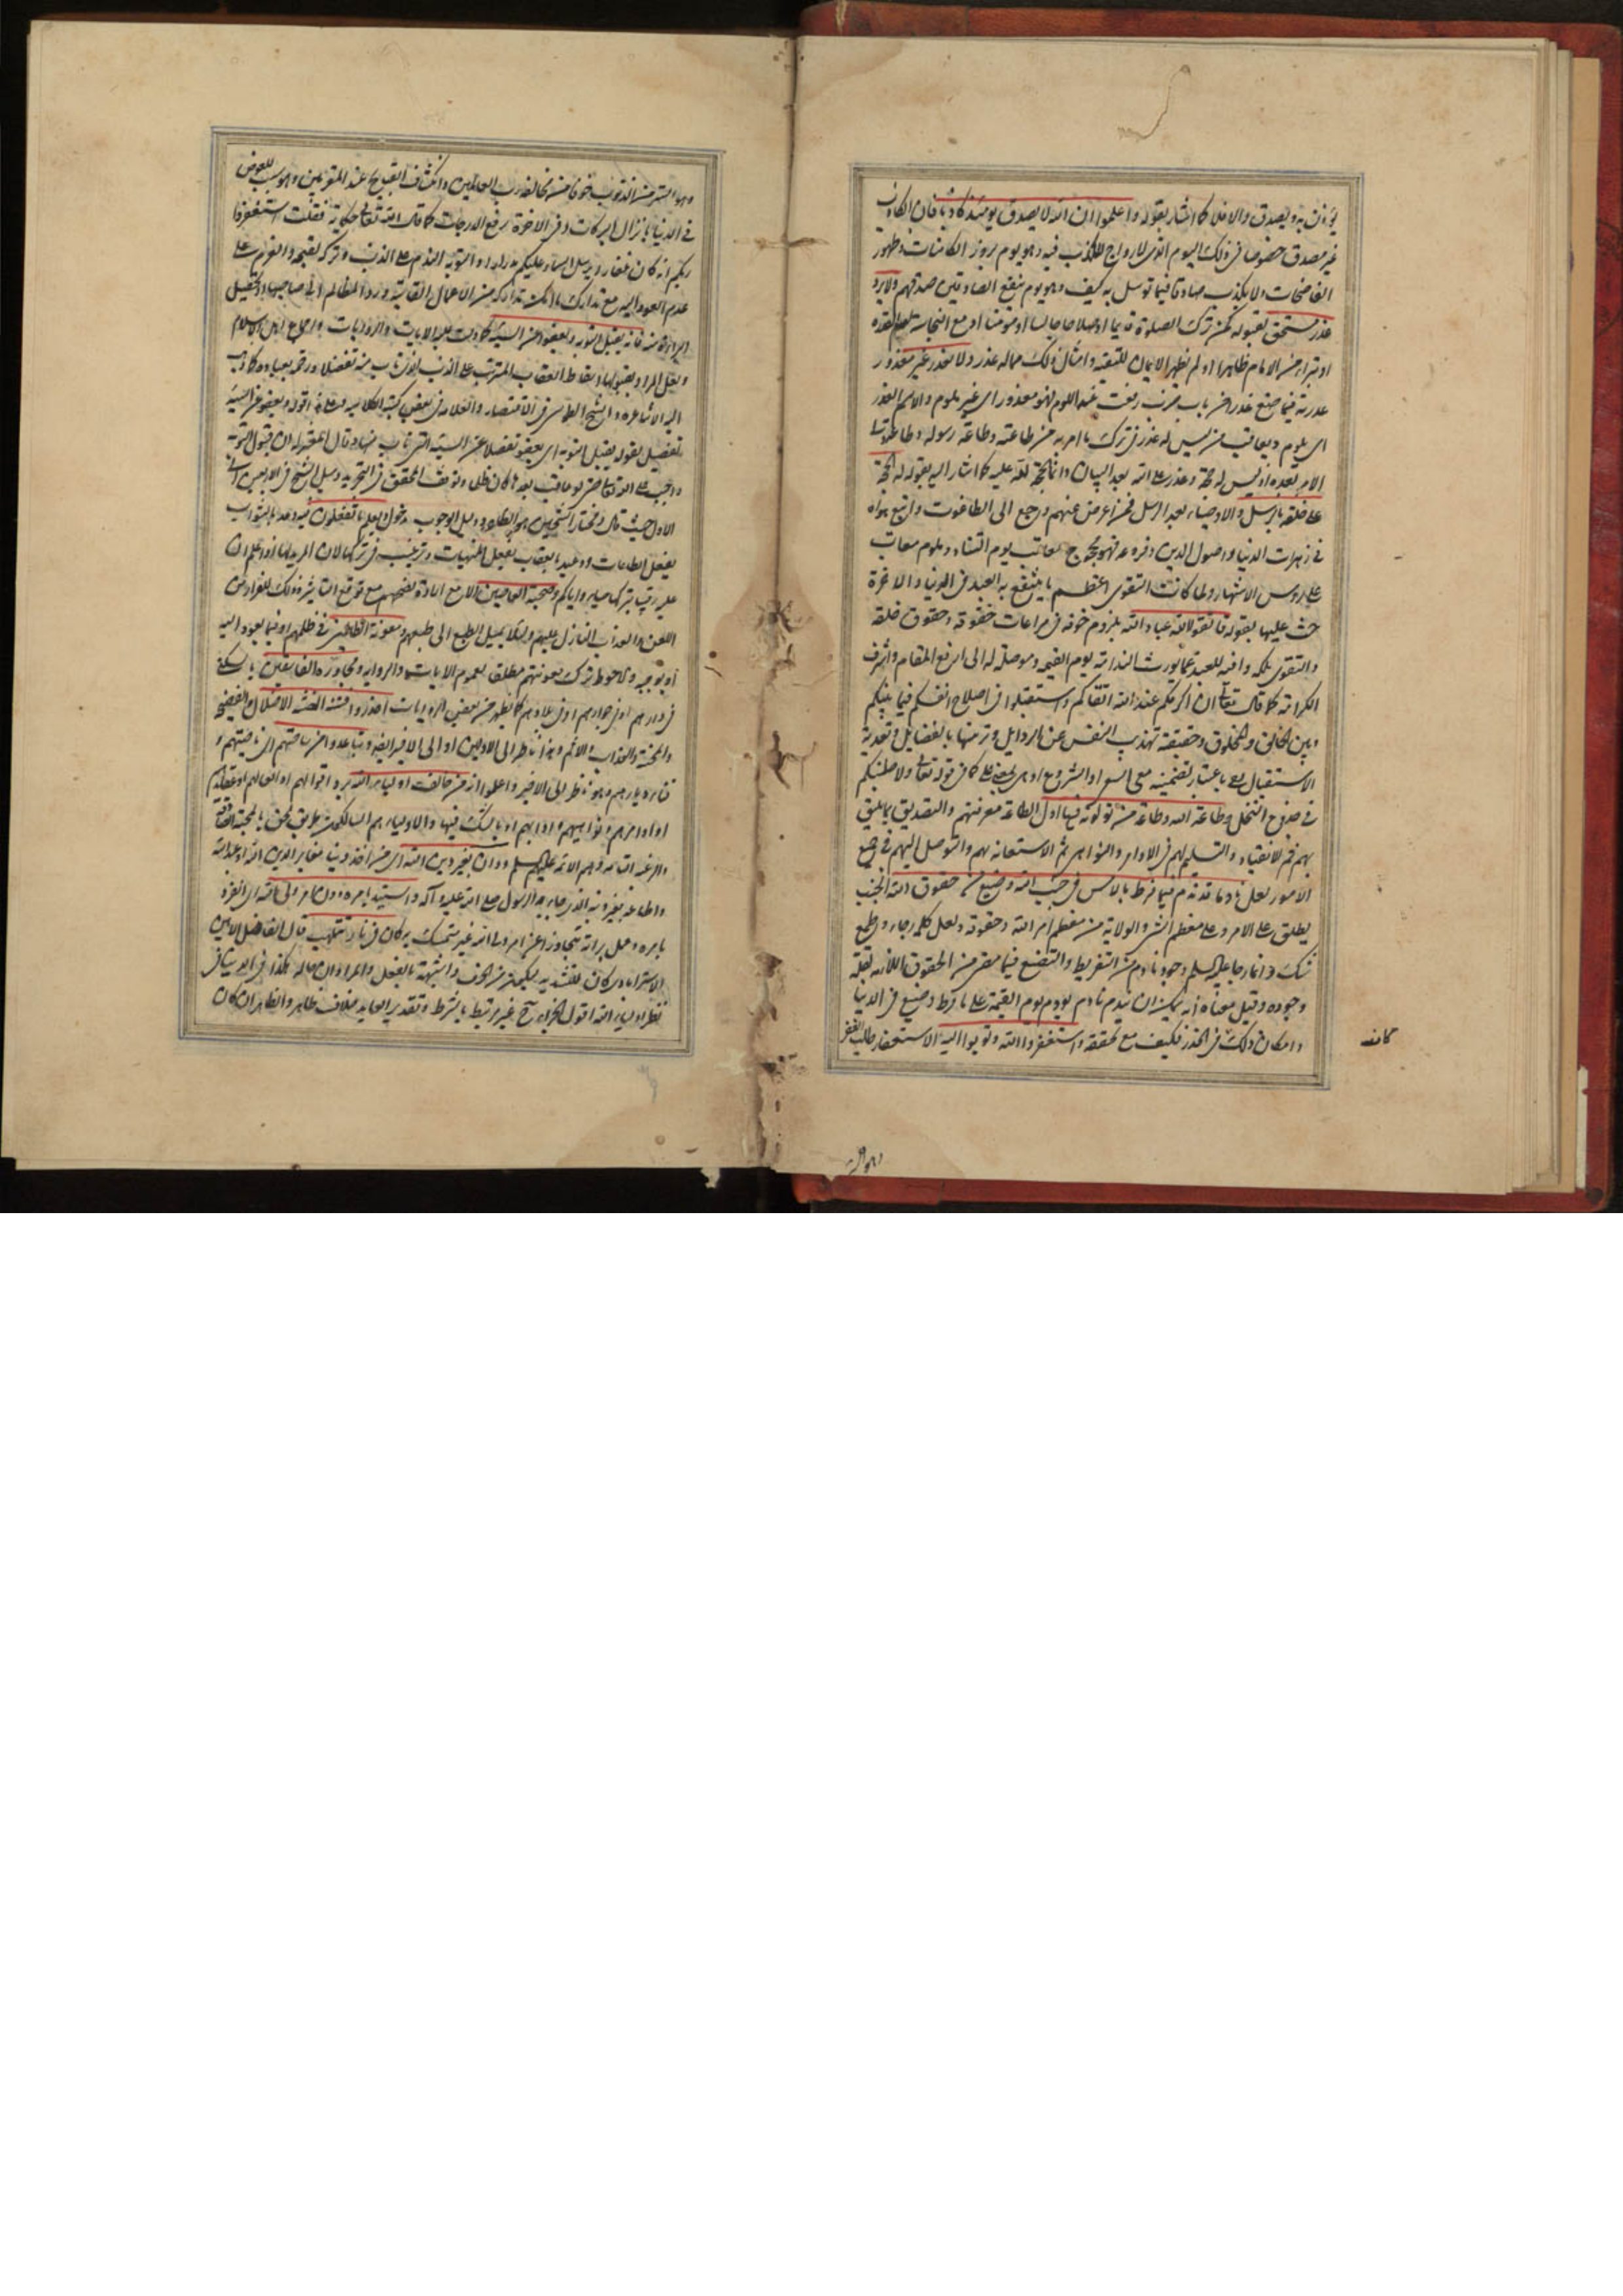 يؤذن به ويصدق والا فلا كما اشار بقوله واعلموا ان الله لا يصدق يومئذ كاذبا فان الكاذب
غير مصدق خصوصا في ذلك اليوم الذي لا رواج للكذب فيه وهو يوم بروز الكامنات وظهور
الفاضحات ولا يكذب صادقا فيما توسل به كيف وهو يوم ينفع الصادقين صدقهم ولا يرد
عذر مستحق بقبوله كمن ترك الصلوة قائما او صلاها جالسا او مع النجاسة
او تبرأ من الامام ظاهرا او لم يظهر الايمان للتقية وامثال ذلك مما له عذر ولا يعذر غير معذور
عذرته فيما صنع عذرا من باب ضرب رفعت عنه اللوم فهو معذور اي غير ملوم والاسم العذر
اي يلوم ويعاقب من ليس له عذر في ترك ما امر به من طاعته وطاعة رسوله وطاعة
الامر بعده اذ ليس له حجة وعذر على الله بعد البيان وانما الحجة لله عليه كما اشار اليه بقوله له الحجة
على خلقه بالرسل والاوصياء بعد الرسل فمن اعرض عنهم ورجع الى الطاغوت واتبع هواه
في زهرات الدنيا واصول الدين وفروعه فهو محجوج معاتب يوم التناد وملوم معاقب
على رؤس الاشهاد ولما كانت التقوى اعظم ما ينتفع به العبد في الدنيا والاخرة
حث عليها بقوله فاتقوا الله عباد الله بلزوم خوفه في مراعات حقوقه وحقوق خلقه
والتقوى ملكة واقية للعبد عما يورث الندامة يوم القيمة وموصلة له الى ارفع المقام واشرف
الكرامة كما قال تعالى ان اكرمكم عند الله اتقاكم واستقبلوا في اصلاح انفسكم فيما بينكم
وبين الخالق والمخلوق وحقيقته تهذيب النفس عن الرذايل وتزيينها بالفضايل وتعدية
الاستقبال بفي باعتبار تضمينه معنى السعي او الشروع او هي بمعنى على كما في قوله تعالى ولاصلبنكم
في جذوع النخل وطاعة الله وطاعة من تولونه فيها اول الطاعة معرفتهم والتصديق بما يليق
بهم ثم الانقياد والتسليم لهم في الاوامر والنواهي ثم الاستعانة بهم والتوسل اليهم في جميع
الامور لعل نادما قد ندم فيما فرط بالامس في جنب الله وضيع من حقوق الله الجنب
يطلق على الامر وعلى معظم الشئ والولاية من معظم امر الله وحقوقه ولعل كلمة رجاء وطمع
وشك وانما رجا عليه السلم وجود نادم من التفريط والتضييع فيما مضى من الحقوق اللازمة لقلة
وجوده وقيل معناه انه يمكن ان يندم نادم يوم القيمة على ما فرط وضيع في الدنيا
وامكان ذلك في الحذر فكيف مع تحققه واستغفروا الله وتوبوا اليه الاستغفار طلب الغفر
وهو الستر من الذنوب خوفا من مخالفة رب العالمين وانكشاف القبيح عند المقربين وهو سبب للعوض
في الدنيا بانزال البركات وفي الاخرة برفع الدرجات كما قال الله تعالى حكاية فقلت استغفروا
ربكم انه كان غفارا يرسل السماء عليكم مدرارا والتوبة الندم على الذنب وتركه لقبحه والعزم على
عدم العود اليه مع تدارك ما امكن تداركه من الاعمال الفائتة ورد المظالم الى صاحبها
فانه يقبل التوبة ويعفو عن السيئة كما دلت عليه الايات والروايات واجماع اهل الاسلام
ولعل المراد بقبولها اسقاط العقاب المترتب على الذنب الذي تاب منه تفضلا ورحمة بعباده كما ذهب
اليه الاشاعرة والشيخ الطوسي في الاقتصاد والعلامة في بعض كتبه الكلامية
تفضيل بقوله يقبل التوبة اي يعفو تفضلا عن السيئة التي تاب منها وقال المعتزلة ان قبول التوبة
واجب على الله تعالى حتى لو عاقب بعدها كان ظلما وتوقف المحقق في التجريد
الاول حيث قال ومختار الشيخين هو الظاهر ودليل الوجوب مدخول ويعلم ما تفعلون فيه وعد بالثواب
بفعل الطاعات ووعيد بالعقاب بفعل المنهيات وترغيب في تركها
واياكم وصحبة العاصين الا مع ارادة نصحهم مع توقع التاثير وذلك للفرار من
اللعن والعذاب النازل عليهم ولئلا يميل الطبع الى طبعهم ومعونة الظالمين في ظلمهم او فيما يعود اليه
والاحوط ترك معونتهم مطلقا لعموم الايات والرواية ومجاورة الفاسقين بالسكنى
في دارهم او في جوارهم او في بلادهم كما يظهر من بعض الروايات احذروا فتنتهم الفتنة الاضلال والفضيحة
والمحنة والعذاب والاثم وهذا ناظر الى الاولين او الى الاخير ايضا وتباعدوا من ساحتهم اي ناحيتهم و
وهو ناظر الى الاخير واعلموا انه من خالف اولياء الله برد اقوالهم او افعالهم او عقايدهم
او اوامرهم او نواهيهم او ادابهم او بالشك فيها والاولياء هم السالكون طريق الحق بالمحبة الصادقة
والرغبة التامة وهم الائمة عليهم السلم ودان بغير دين الله اي من اتخذ دينا مغاير الدين الله او عبد الله
واطاعه بغير دينه الذي جاء به الرسول صلى الله عليه وآله واستبد بامره دون امر ولي الله اي انفرد
بامره وعمل برأيه متجاوزا عن امر ولي الله غير متمسك به كان في نار تلتهب قال الفاضل الامين
الاسترآبادي كان للتشبيه
نظر اولياء الله اقول الجزاء ح غير مرتبط بالشرط وتقدير العايد خلاف ظاهر والظاهر ان كان